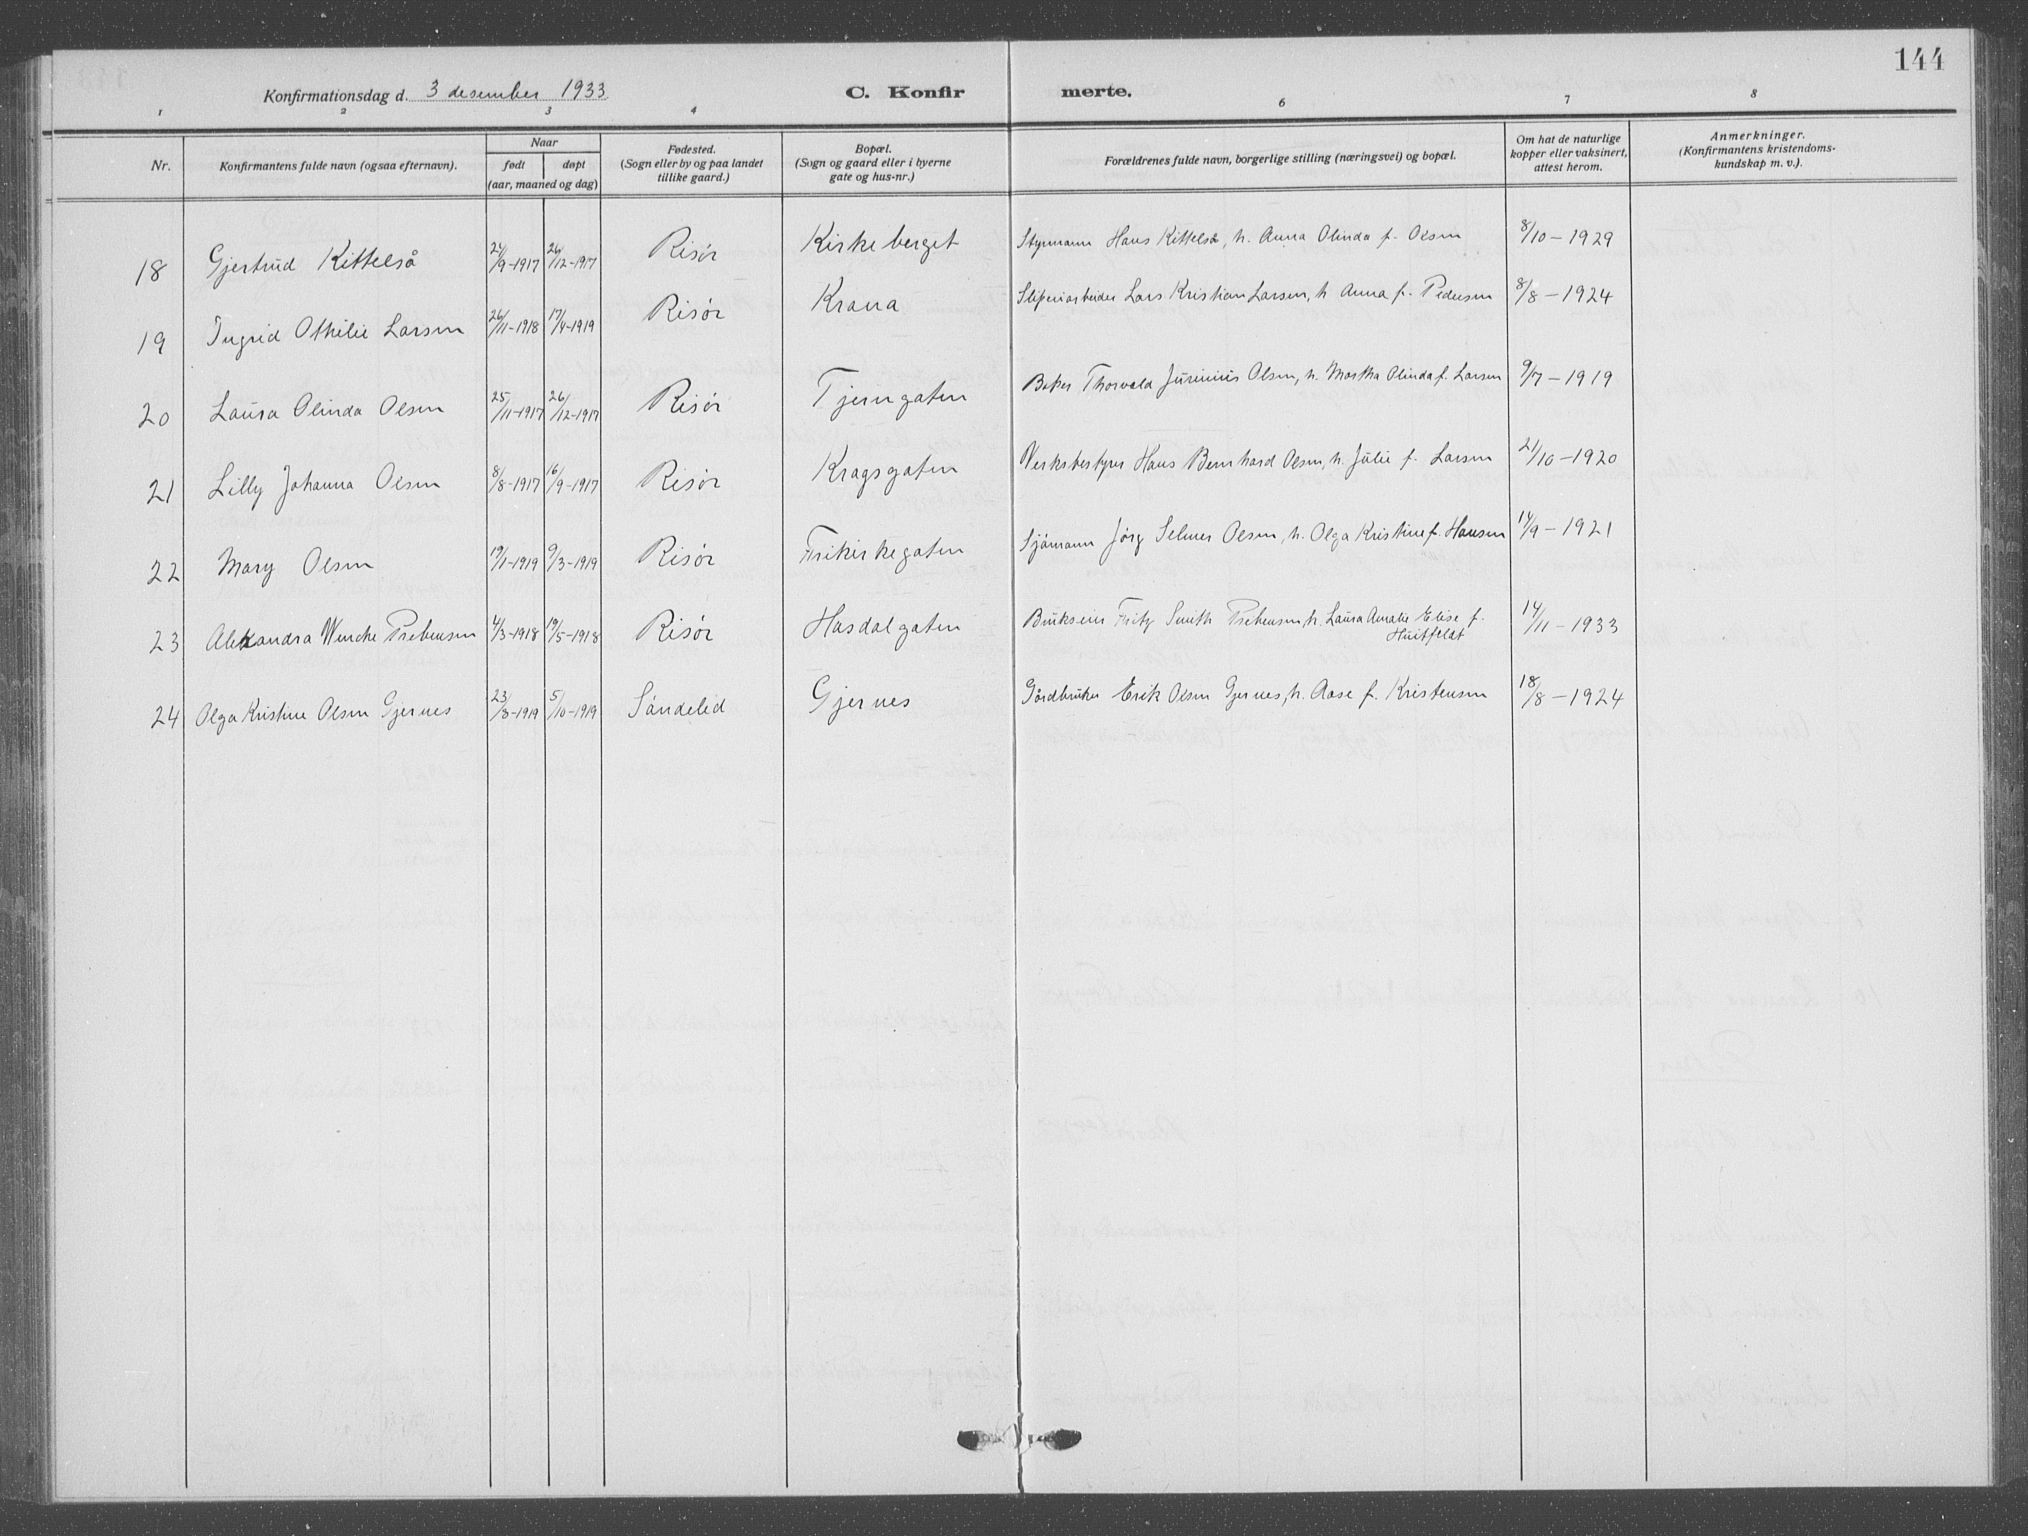 144
Konfirmationsdag d. 3 desember 1933 C. Konfirmerte.
1 2 3 4 6 7 8
Nr. Konfirmantens fulde navn (ogsaa efternavn). Naar født døpt (aar, maaned og dag) Fødested. (Sogn eller by og paa landet tillike gaard.) Bopæl. (Sogn og gaard eller i byerne gate og hus-nr.) Forældrenes fulde navn, borgerlige stilling (næringsvei) og bopæl. Om hat de naturlige kopper eller vaksinert, attest herom. Anmerkninger. (Konfirmantens kristendomskundskap m. v.).
18 Gjertrud Kittelså 24/9-1917 26/12-1917 Risør Kirkeberget Styrmann Hans Kittelså, h. Anna Olinda f. Olsen 8/10-1929
19 Ingrid Othilie Larsen 26/11-1918 17/4-1919 Risør Krana Sliperiarbeider Lars Kristian Larsen, h Anna f. Pedersen 8/8-1924
20 Laura Olinda Olsen 25/11-1917 26/12-1917 Risør Tjerngaten Baker Thorvald Olsen, h. Martha Olinda f. Larsen 9/7-1919
21 Lilly Johanna Olsen 8/8-1917 16/9-1917 Risør Kragsgaten Verksbestyrer Hans Bernhard Olsen, h. Julie f. Larsen 21/10-1920
22 Mary Olsen 19/1-1919 9/3-1919 Risør Frikirkegaten Sjömann Jörg Selmer Olsen, h. Olga Kristine f. Hansen 14/9-1921
23 Alexandra Wencke Prebensen 4/3-1918 19/5-1918 Risør Hasdalgaten Brukseier Fritz Smith Prebensen h. Laura Amalie Elise f. Huitfeldt 14/11-1933
24 Olga Kristine Olsen Gjernes 23/8-1919 5/10-1919 Söndeled Gjernes Gårdbruker Erik Olsen Gjernes, h. Aase f. Kristensen 18/8-1924